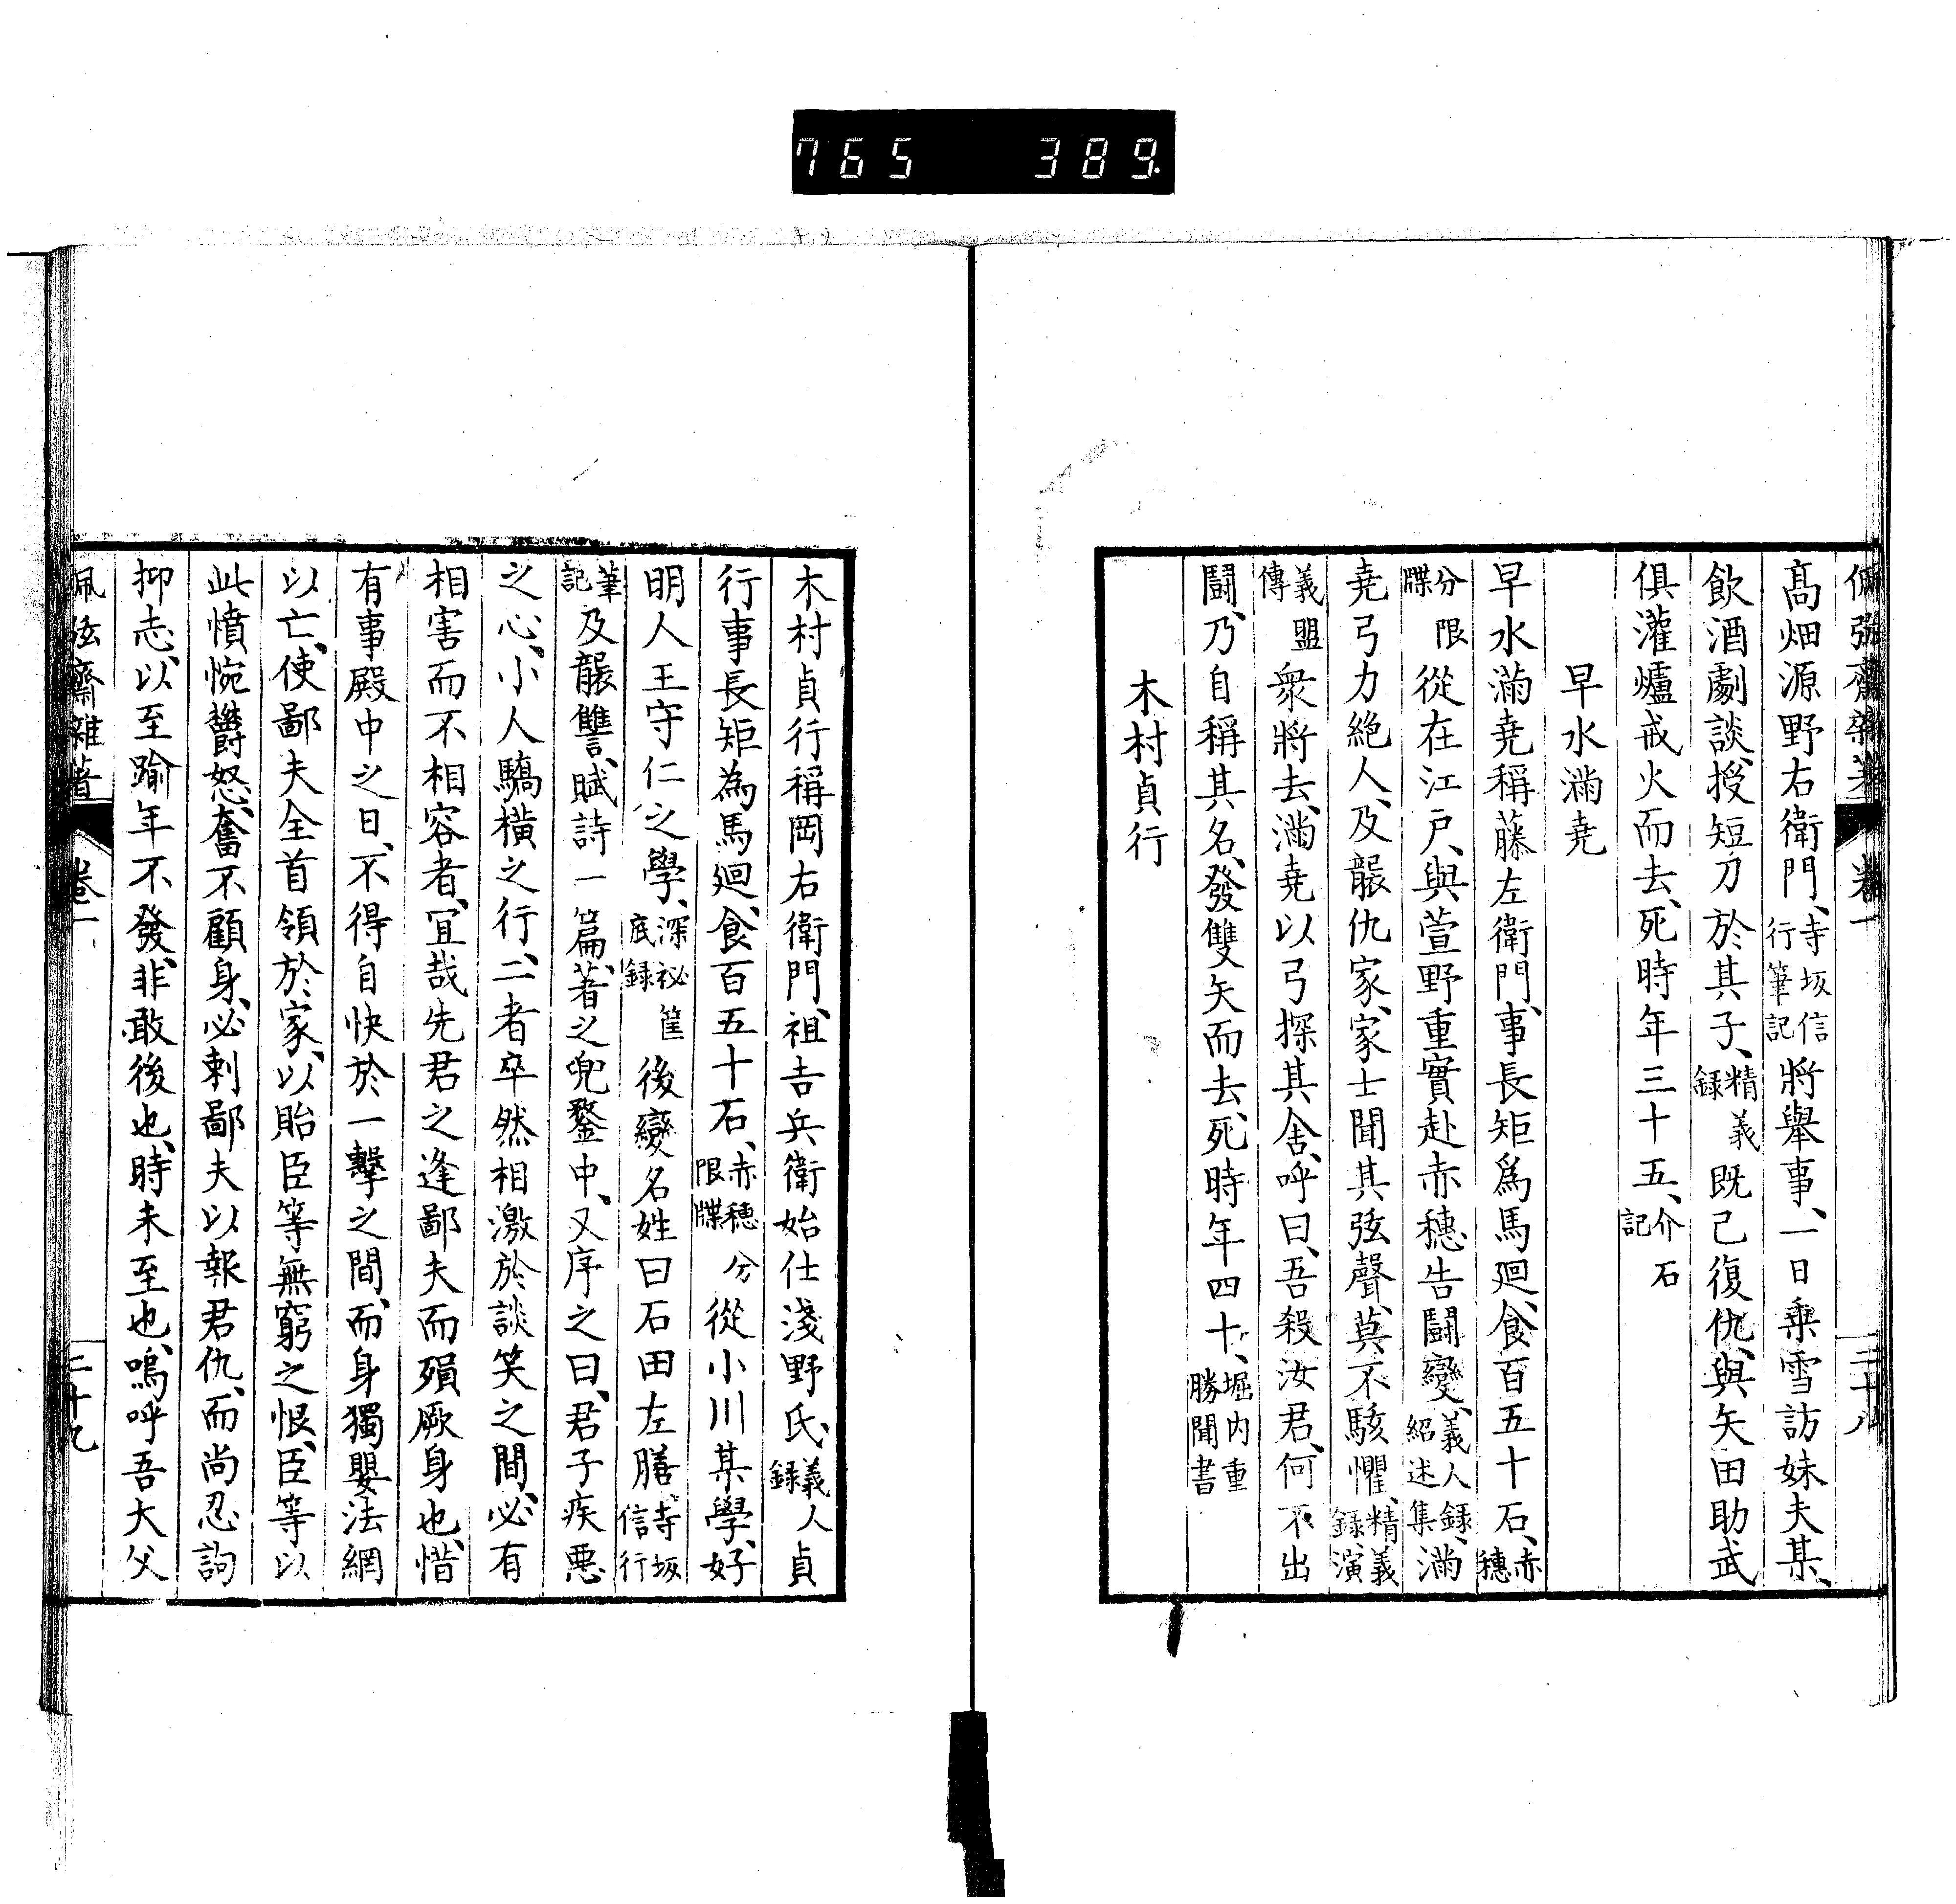 765 389
佩弦齋雜著 卷一 二十八
髙畑源野右衛門、寺坂信行筆記將舉事、一日乘雪訪妹夫某、
飲酒劇談、授短刀於其子、精義録既己復仇、與矢田助武
俱灌爐戒火而去、死時年三十五、介石記
早水滿堯
早水滿堯稱藤左衛門、事長矩爲馬廻、食百五十石、赤穗
分限牒從在江戸、與萱野重實赴赤穗告鬪變、義人録、紹述集滿
堯弓力絶人、及襲仇家、家士聞其弦聲、莫不駭懼、精義録、演
義盟傳衆將去、滿堯以弓探其舍、呼曰、吾殺汝君、何不出
鬪、乃自稱其名、發雙矢而去、死時年四十、堀内重勝聞書
木村貞行
木村貞行稱岡右衛門、祖吉兵衛始仕淺野氏、義人録貞
行事長矩為馬廻、食百五十石、赤穗分限牒從小川某學、好
明人王守仁之學、深祕筐底録後變名姓曰石田左膳、寺坂信行
筆記及襲讐、賦詩一篇、著之兜鍪中、又序之曰、君子疾悪
之心、小人驕橫之行、二者卒然相激於談笑之間、必有
相害而不相容者、宜哉先君之逢鄙夫而殞厥身也、惜
有事殿中之日、不得自快於一擊之間、而身獨嬰法網
以亡、使鄙夫全首領於家、以貽臣等無窮之恨、臣等以
此憤惋欝怒、奮不顧身、必刺鄙夫以報君仇、而尚忍詢
抑志、以至踰年不發、非敢後也、時未至也、嗚呼吾大父
佩弦齋雜著 卷一 二十九